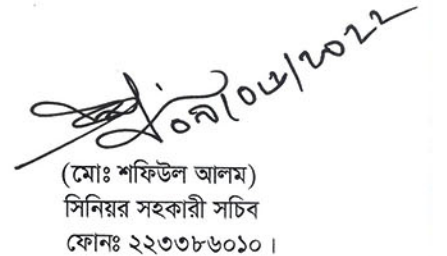 ০৯/০৫/২০২২
(মোঃ শফিউল আলম)
সিনিয়র সহকারী সচিব
ফোনঃ ২২৩৩৮৬০১০।